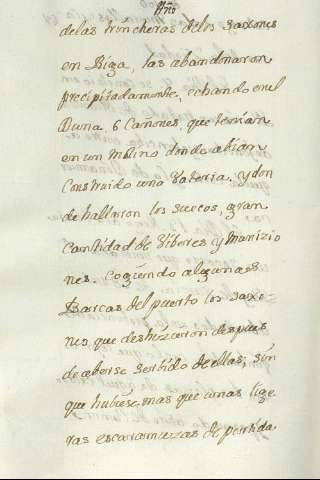 delas trincheras delos saxones
en Riga, las abandonaron
precipitadamente, echando enel
Duna, 6 Cañones, que tenian
en un Molino donde abian
construido una bateria, y don
de hallaron los suecos, gran
cantidad de Viberes y Munizio
nes. cogiendo algunas
Barcas del puerto los saxo
nes, que deshizieron despues
de aberse serbido de ellas, sin
que hubiese mas que unas lige
ras escaramuzas de perdida.